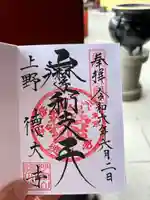 奉拝 令和六年六月二日
摩利支天
上野 徳大寺